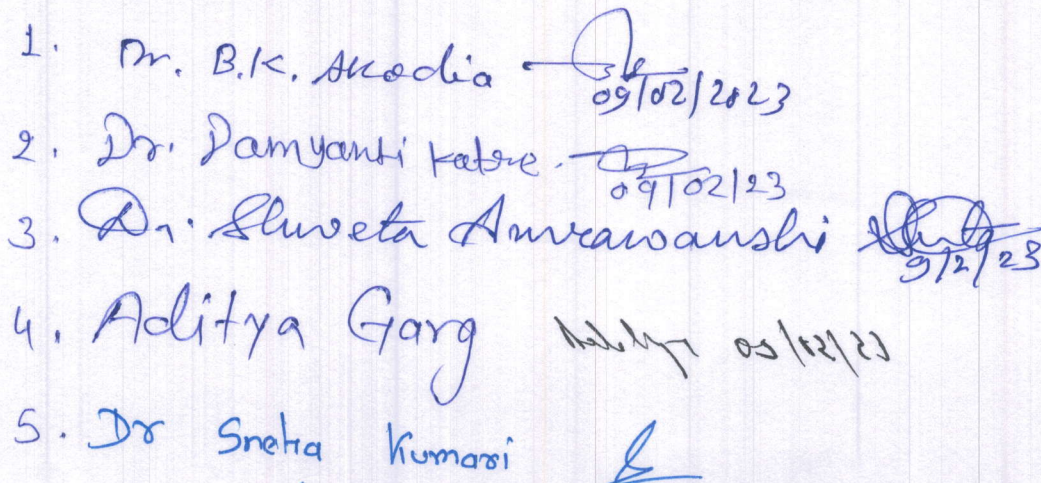 1. Dr. B.K. Akodia 09/02/2023
2. Dr. Damyanti Katre. 09/02/23
3. Dr. Shweta Anurawanshi 9/2/23
4. Aditya Garg
5. Dr Sneha Kumari